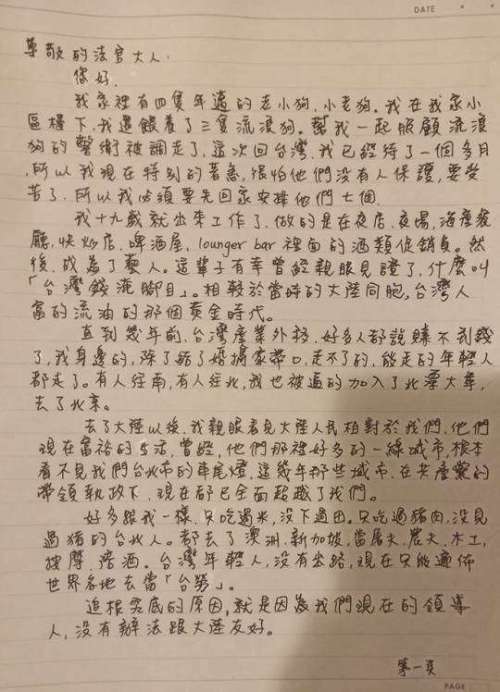 DATE
尊敬的法官大人:
您好.
我家裡有四隻年邁的老小狗.小老狗.我在我家小
區樓下,我還餵養了三隻流浪狗。幫我一起照顧流浪
狗的警衛被調走了,這次回台灣.我已經待了一個多月
,所以我現在特別的著急,很怕他們沒有人保護,要受
苦了.所以我必須要先回家安排他們七個.
我十九歲就出來工作了.做的是在夜店.夜場.海產餐
廳.快炒店.啤酒屋, lounger bar 裡面的酒類促銷員。然
後.成為了藝人。這輩子有幸曾經親眼見證了,什麼叫
「台灣錢淹腳目」。相較於當時的大陸同胞,台灣人
富的流油的那個黃金時代。
直到幾年前.台灣產業外移.好多人都說賺不到錢
了,我身邊的,除了結了婚攜家帶口.走不了的,能走的年輕人
都走了。有人往南,有人往北,我也被逼的加入了北漂大軍,
去了北京。
去了大陸以後.我親眼看見大陸人民相對於我們.他們
現在富裕的生活.曾經,他們那裡好多的一線城市,根本
看不見我們台北市的車尾燈.這幾年那些城市.在共產黨的
帶領執政下.現在都已全面超越了我們。
好多跟我一樣.只吃過米,沒下過田。只吃過豬肉,沒見
過豬的台北人。都去了澳洲.新加坡.當屠夫.農夫.木工,
按摩.陪酒。台灣年輕人,沒有出路,現在只能遍佈
世界各地去當「台勞」。
追根究底的原因,就是因為我們現在的領導
人,沒有辦法跟大陸友好。
第一頁
PAGE